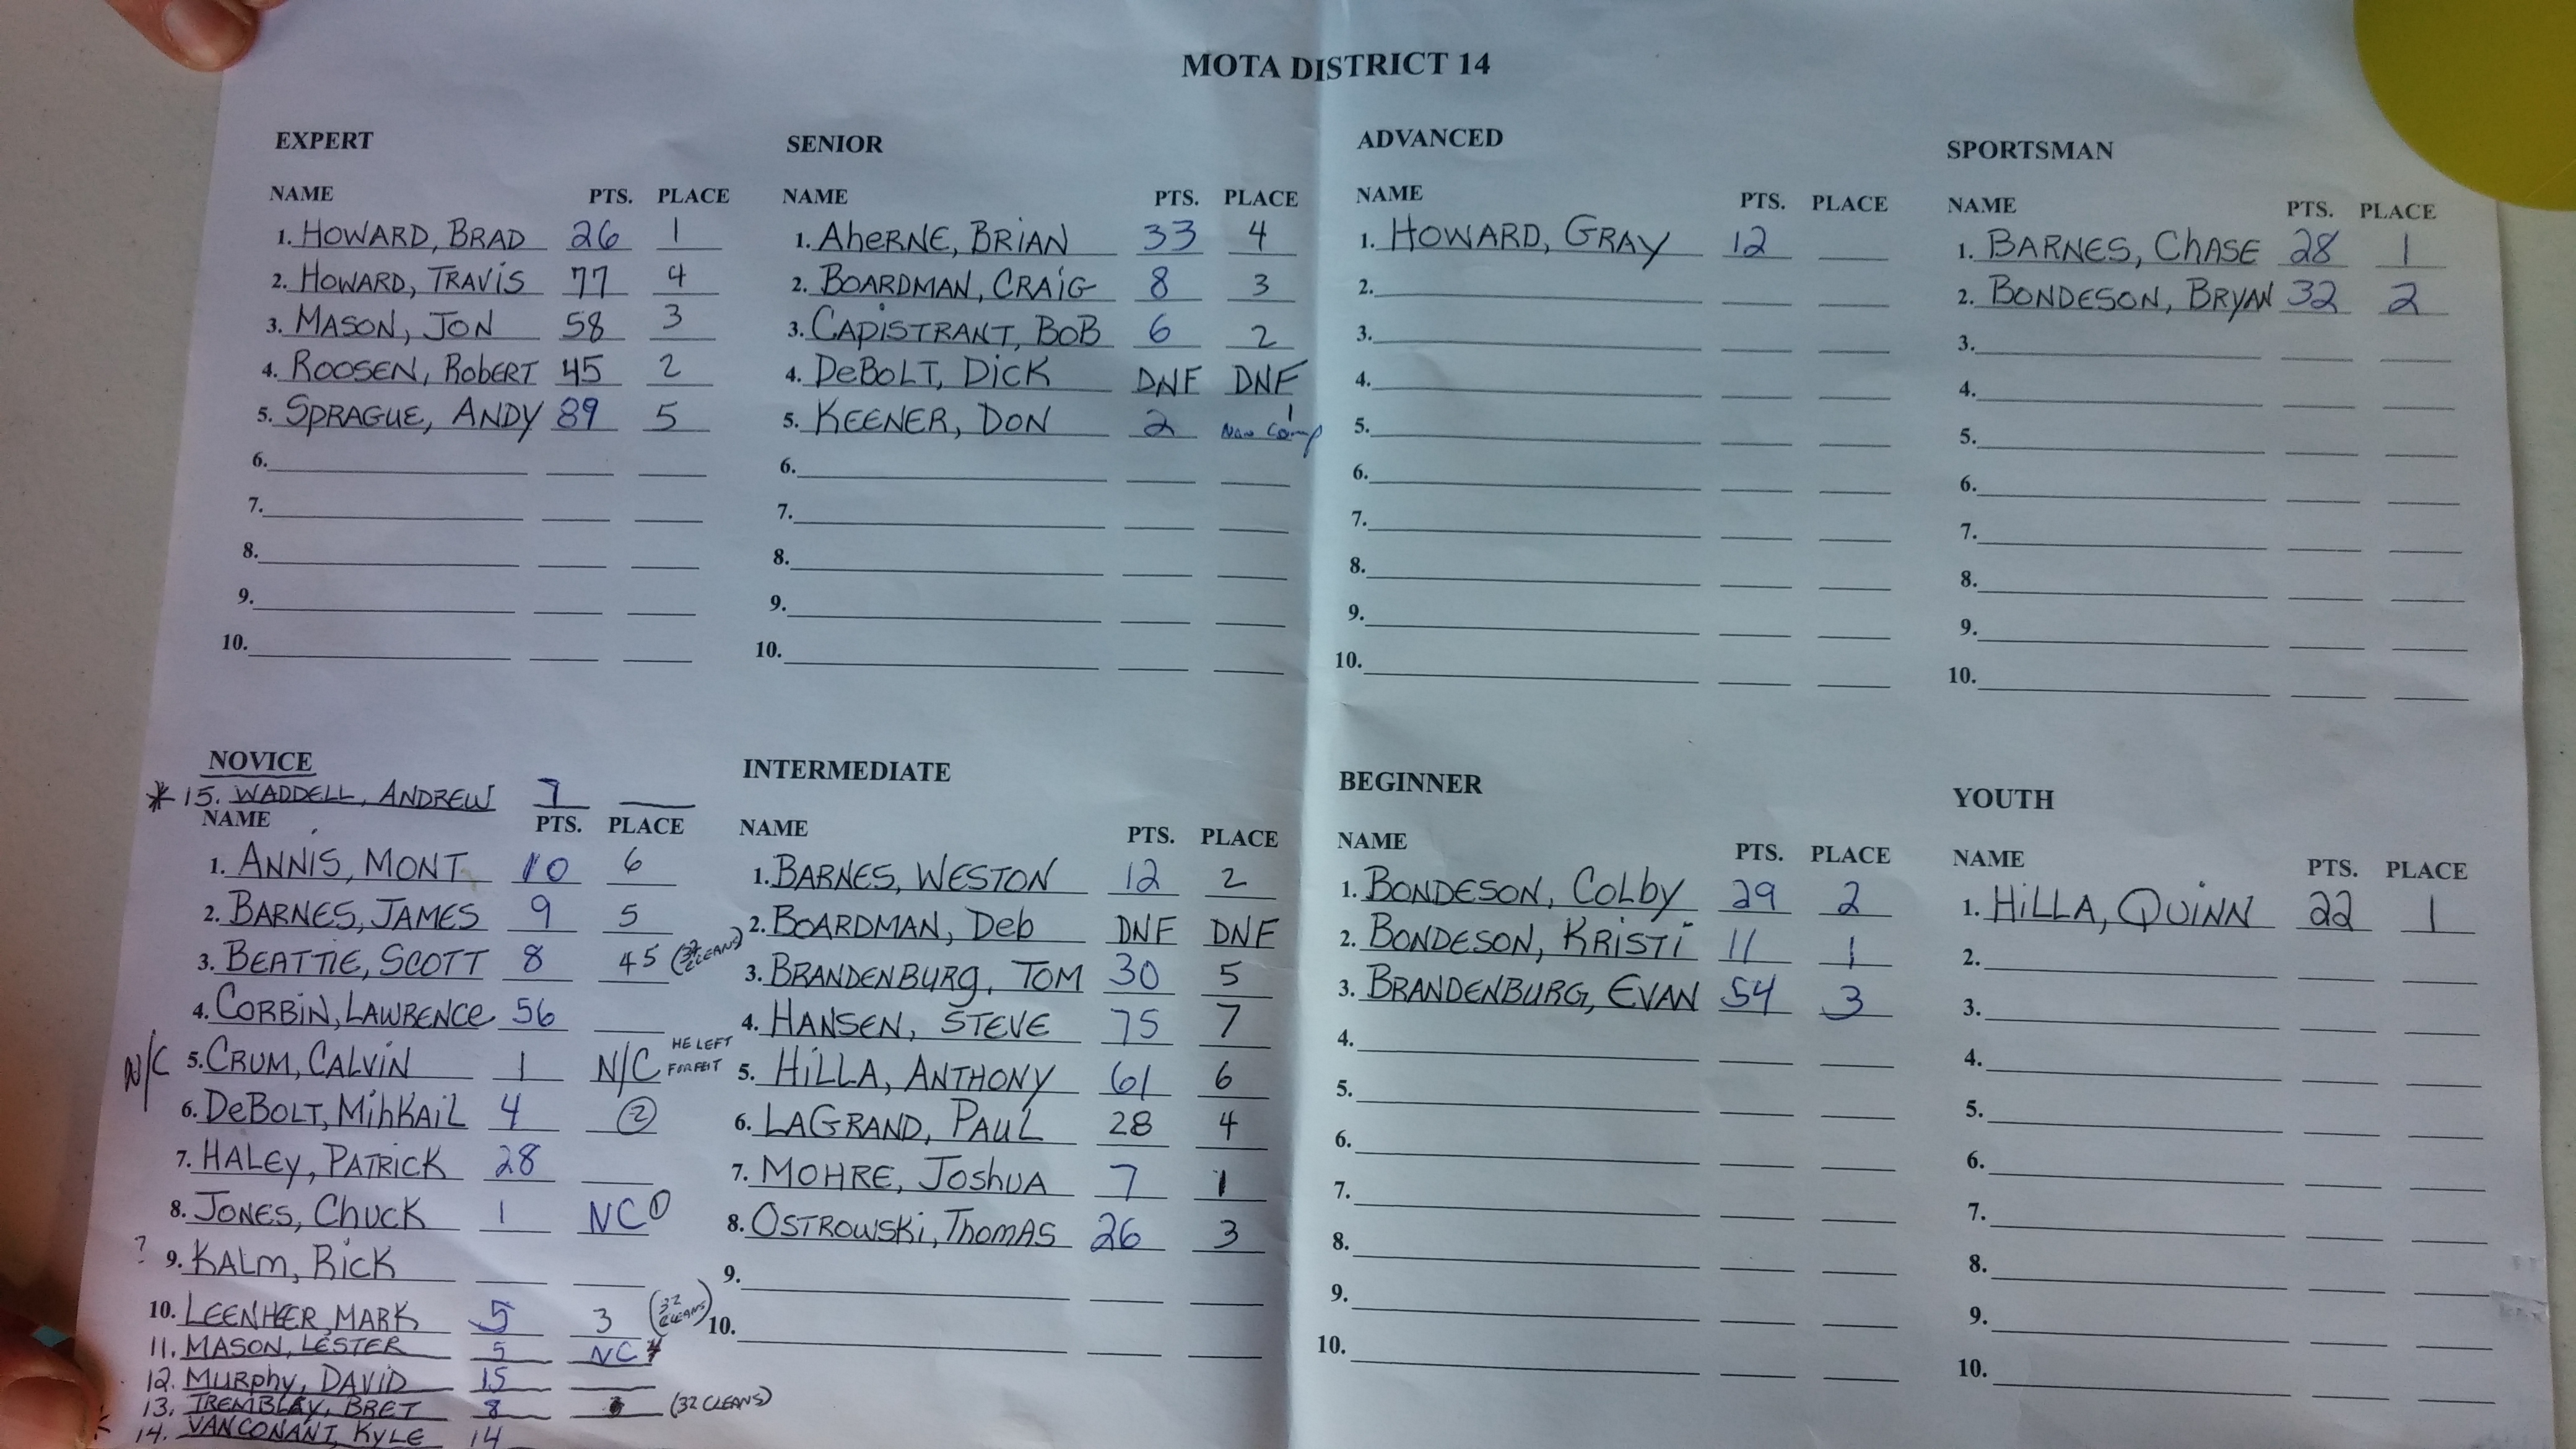 MOTA DISTRICT 14
EXPERT
NAME PTS. PLACE
1. HOWARD, BRAD 26 1
2. HOWARD, TRAVIS 77 4
3. MASON, JON 58 3
4. ROOSEN, RobERT 45 2
5. SPRAGUE, ANDY 89 5
6.
7.
8.
9.
10.
SENIOR
NAME PTS. PLACE
1. AhERNE, BRiAN 33 4
2. BOARDMAN, CRAiG 8 3
3. CAPiSTRANT, BOB 6 2
4. DeBOLT, DiCK DNF DNF
5. KEENER, DON 2 1 Non Comp
6.
7.
8.
9.
10.
ADVANCED
NAME PTS. PLACE
1. HOWARD, GRAY 12
2.
3.
4.
5.
6.
7.
8.
9.
10.
SPORTSMAN
NAME PTS. PLACE
1. BARNES, ChASE 28 1
2. BONDESON, BRYAN 32 2
3.
4.
5.
6.
7.
8.
9.
10.
NOVICE
* 15. WADDELL, ANDREW 7
NAME PTS. PLACE
1. ANNIS, MONT 10 6
2. BARNES, JAMES 9 5
3. BEATTiE, SCOTT 8 45 CLEANS)
4. CORBiN, LAWRENCE 56
N/C 5. CRUM, CALViN 1 N/C HE LEFT FORFEIT
6. DeBOLT, MihKAiL 4 2
7. HALEY, PATRICK 28
8. JONES, ChUCK 1 NC 1
? 9. KALM, RiCK
10. LEENHEER, MARK 5 3 (32 CLEANS)
11. MASON, LESTER 5 NC 4
12. MURphy, DAViD 15
13. TREMBLAY, BRET 8 (32 CLEANS)
* 14. VANCONANT, KYLE 14
INTERMEDIATE
NAME PTS. PLACE
1. BARNES, WESTON 12 2
2. BOARDMAN, Deb DNF DNF
3. BRANDENBURG, TOM 30 5
4. HANSEN, STEVE 75 7
5. HiLLA, ANTHONY 61 6
6. LAGRAND, PAUL 28 4
7. MOHRE, JoshUA 7 1
8. OSTROWSKi, ThomAS 26 3
9.
10.
BEGINNER
NAME PTS. PLACE
1. BONDESON, COLby 29 2
2. BONDESON, KRiSTi 11 1
3. BRANDENBURG, EVAN 54 3
4.
5.
6.
7.
8.
9.
10.
YOUTH
NAME PTS. PLACE
1. HiLLA, QUiNN 22 1
2.
3.
4.
5.
6.
7.
8.
9.
10.